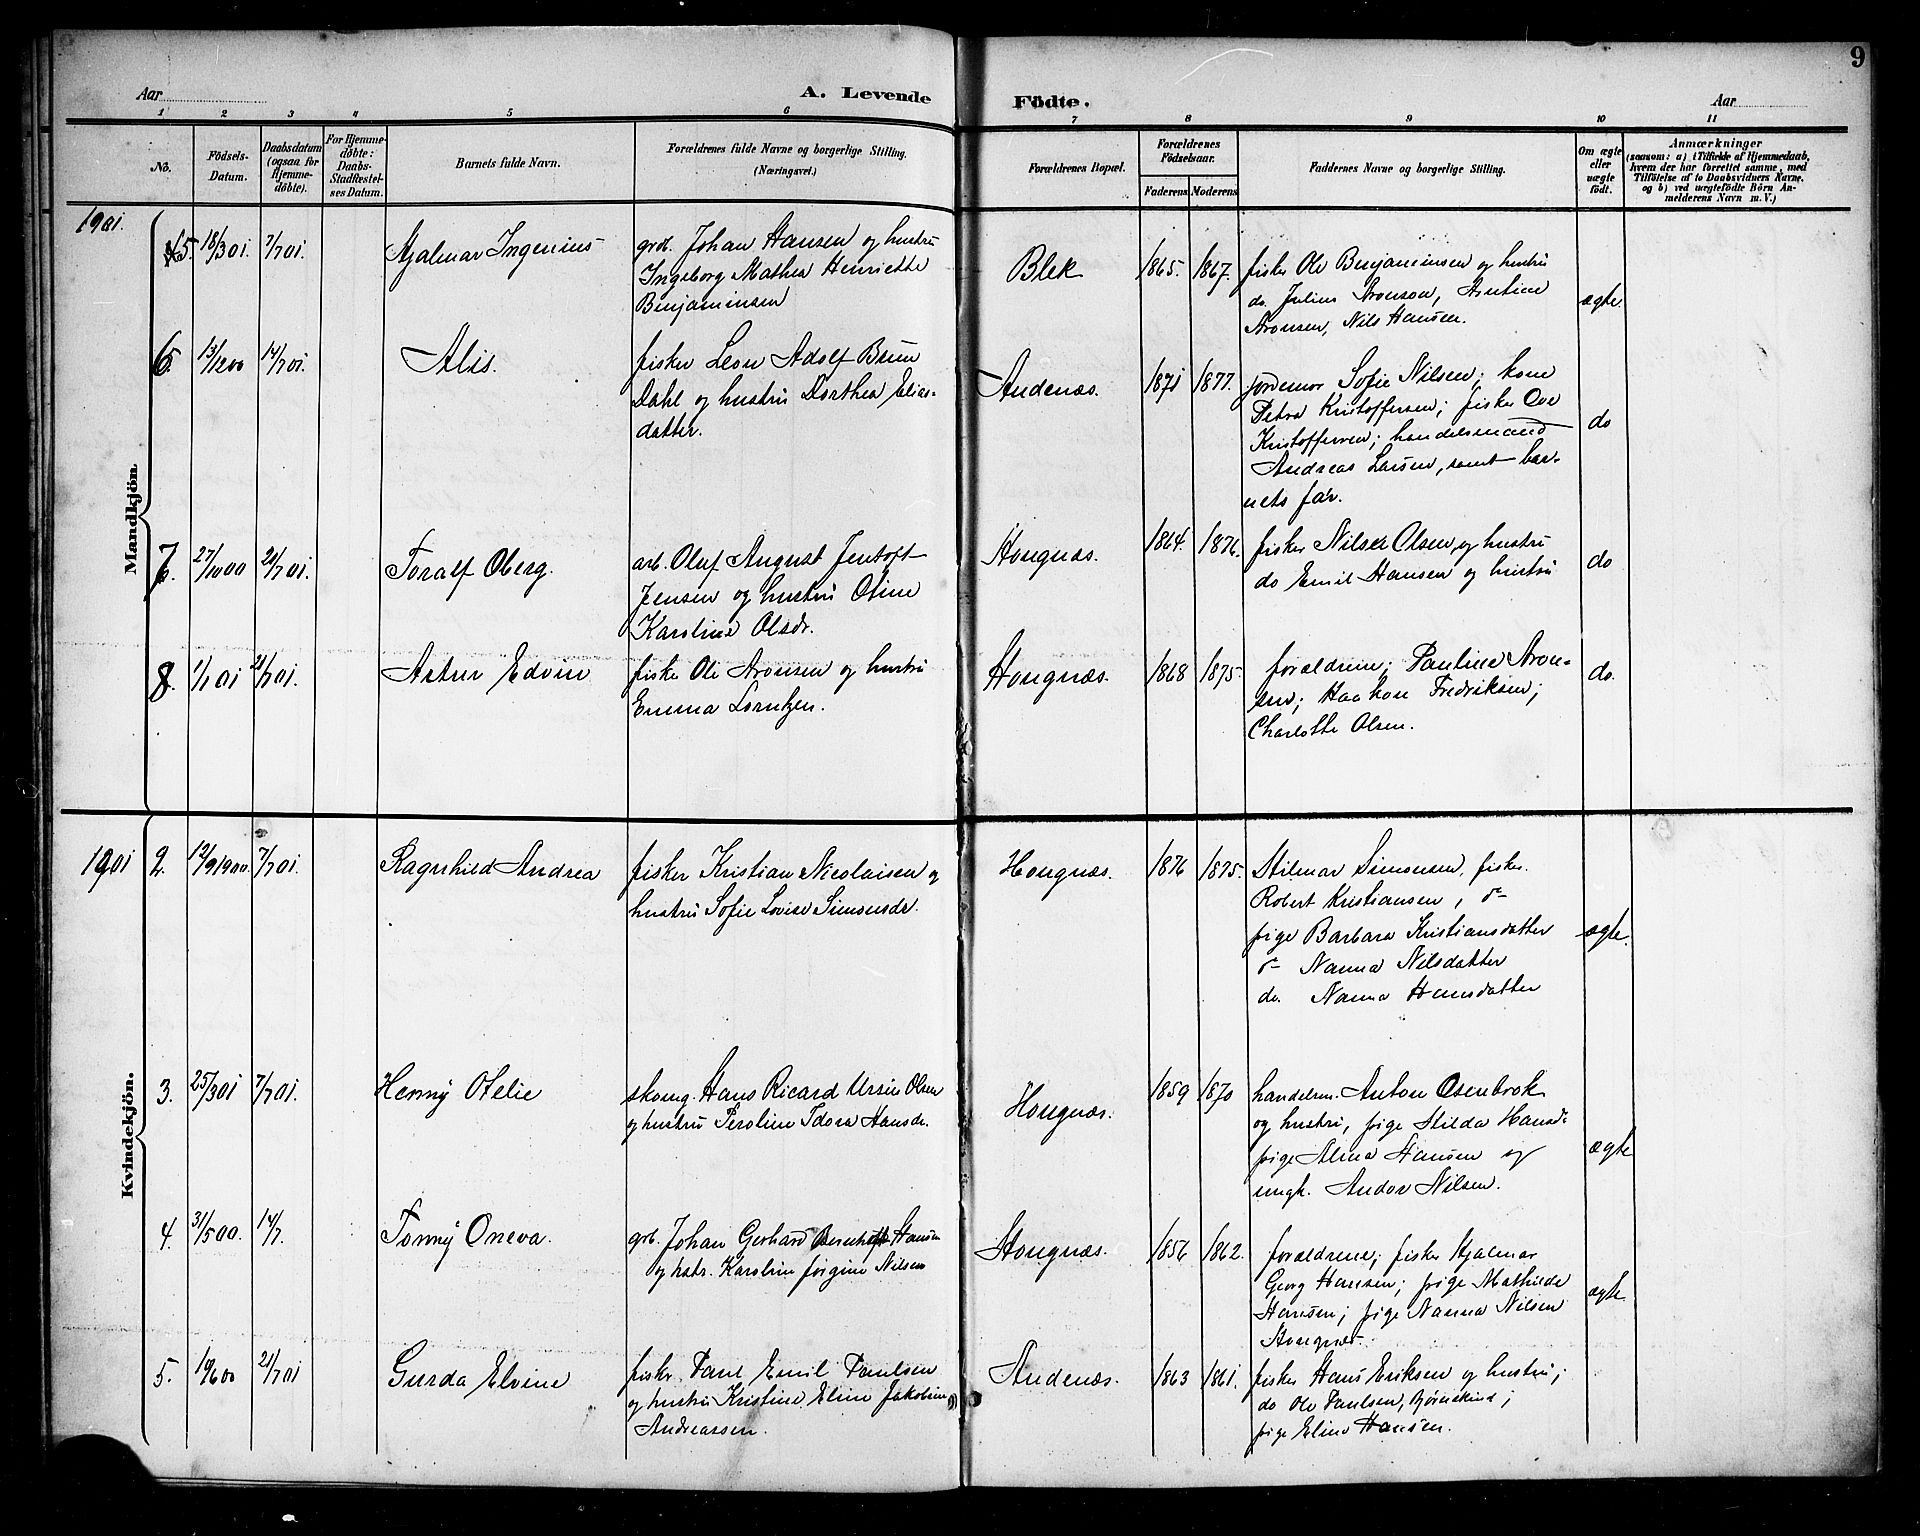 9
Aar
A. Levende
Födte.
Aar
1 2 3 4 5 6 7 8 9 10 11
No.
Födsels-
Datum.
Daabsdatum
(ogsaa for
Hjemme-
döbte).
For Hjemme-
döbte:
Daabs-
Stadfæstel-
ses Datum.
Barnets fulde Navn.
Forældrenes fulde Navne og borgerlige Stilling.
(Næringsvei.)
Forældrenes Bopæl.
Forældrenes
Födselsaar.
Faderens Moderens
Faddernes Navne og borgerlige Stilling.
Om ægte
eller
uægte
födt.
Anmærkninger
(saasom: a) i Tilfælde af Hjemmedaab,
hvem der har forrettet samme, med
Tilföielse af to Daabsvidners Navne,
og b) ved uægtefödte Börn An-
melderens Navn m. V.)
Mandkjön.
1901.
5. 18/3 01. 7/7 01.
Hjalmar Ingenius
grd. Johan Hansen og hustru
Ingeborg Mathea Henriette
Benjaminsen
Blek
1865. 1867.
fisker Ole Benjaminsen og hustru
do. Julius Aronsen,
Aronsen, Nils Hansen.
ægte
6. 13/12 00 14/7 01.
Alis.
fisker Leon Adolf Brun
Dahl og hustru Dorthea Elias-
datter.
Andenæs.
1871 1877.
jordemor Sofie Nilsen; kone
Petra Kristoffersen; fisker Ove
Kristoffersen; handelsmand
Andreas Larsen, samt bar-
nets far.
do
7. 27/10 00 21/7 01.
Toralf Oberg.
arb. Oluf August Jentoft
Jensen og hustru Otine
Karoline Olsdr.
Hongnæs.
1864. 1876.
fisker Olsen og hustru
do Emil Hansen og hustru
do
8. 1/1 01 21/7 01.
Artur Edvin
fisker Ole Aronsen og hustru
Emma Lorntzen.
Hongnæs.
1868 1875.
forældrene; Pauline Aron-
sen; Haakon Fredriksen;
Charlotte Olsen.
do.
Kvindekjön.
1901
2. 12/9 1900. 7/7 01.
Ragnhild Andrea
fisker Kristian Nicolaisen og
hustru Sofie Lovise Simonsdr.
Hongnæs.
1876 1875.
Hilmar Simonsen, fisker.
Robert Kristiansen,
pige Barbara Kristiansdatter
Nanna Nilsdatter
do. Nanna Hansdatter
ægte.
3. 25/3 01 7/7 01.
Henny Otelie
skomg. Hans Ricard Ursin Olsen
og hustru Peroline Idora Hansdr.
Hongnæs.
1859 1870
handelsm. Anton Osenbrok
og hustru, pige Hilda Hansd.
pige Alma Hansen og
ungk. Andor Nilsen.
ægte
4. 31/5 00. 14/7.
Tonny Oneva.
grb. Johan Gerhard Hansen
og hstr. Karoline Jørgine Nilsen
Hongnæs.
1856 1862.
forældrene; fisker Hjalmar
Georg Hansen; pige Mathilde
Hansen; pige Nanna Nilsen
Hongnæs.
ægte
5. 10/6 00 21/7 01
Gurda Elvine
fisker Paul Emil Paulsen
og hustru Kristine Eline Jakobine
Andreassen.
Andenæs.
1863 1861.
fisker Hans Eriksen og hustru;
do Ole Paulsen, Bjørnskind;
pige Eline Hansen.